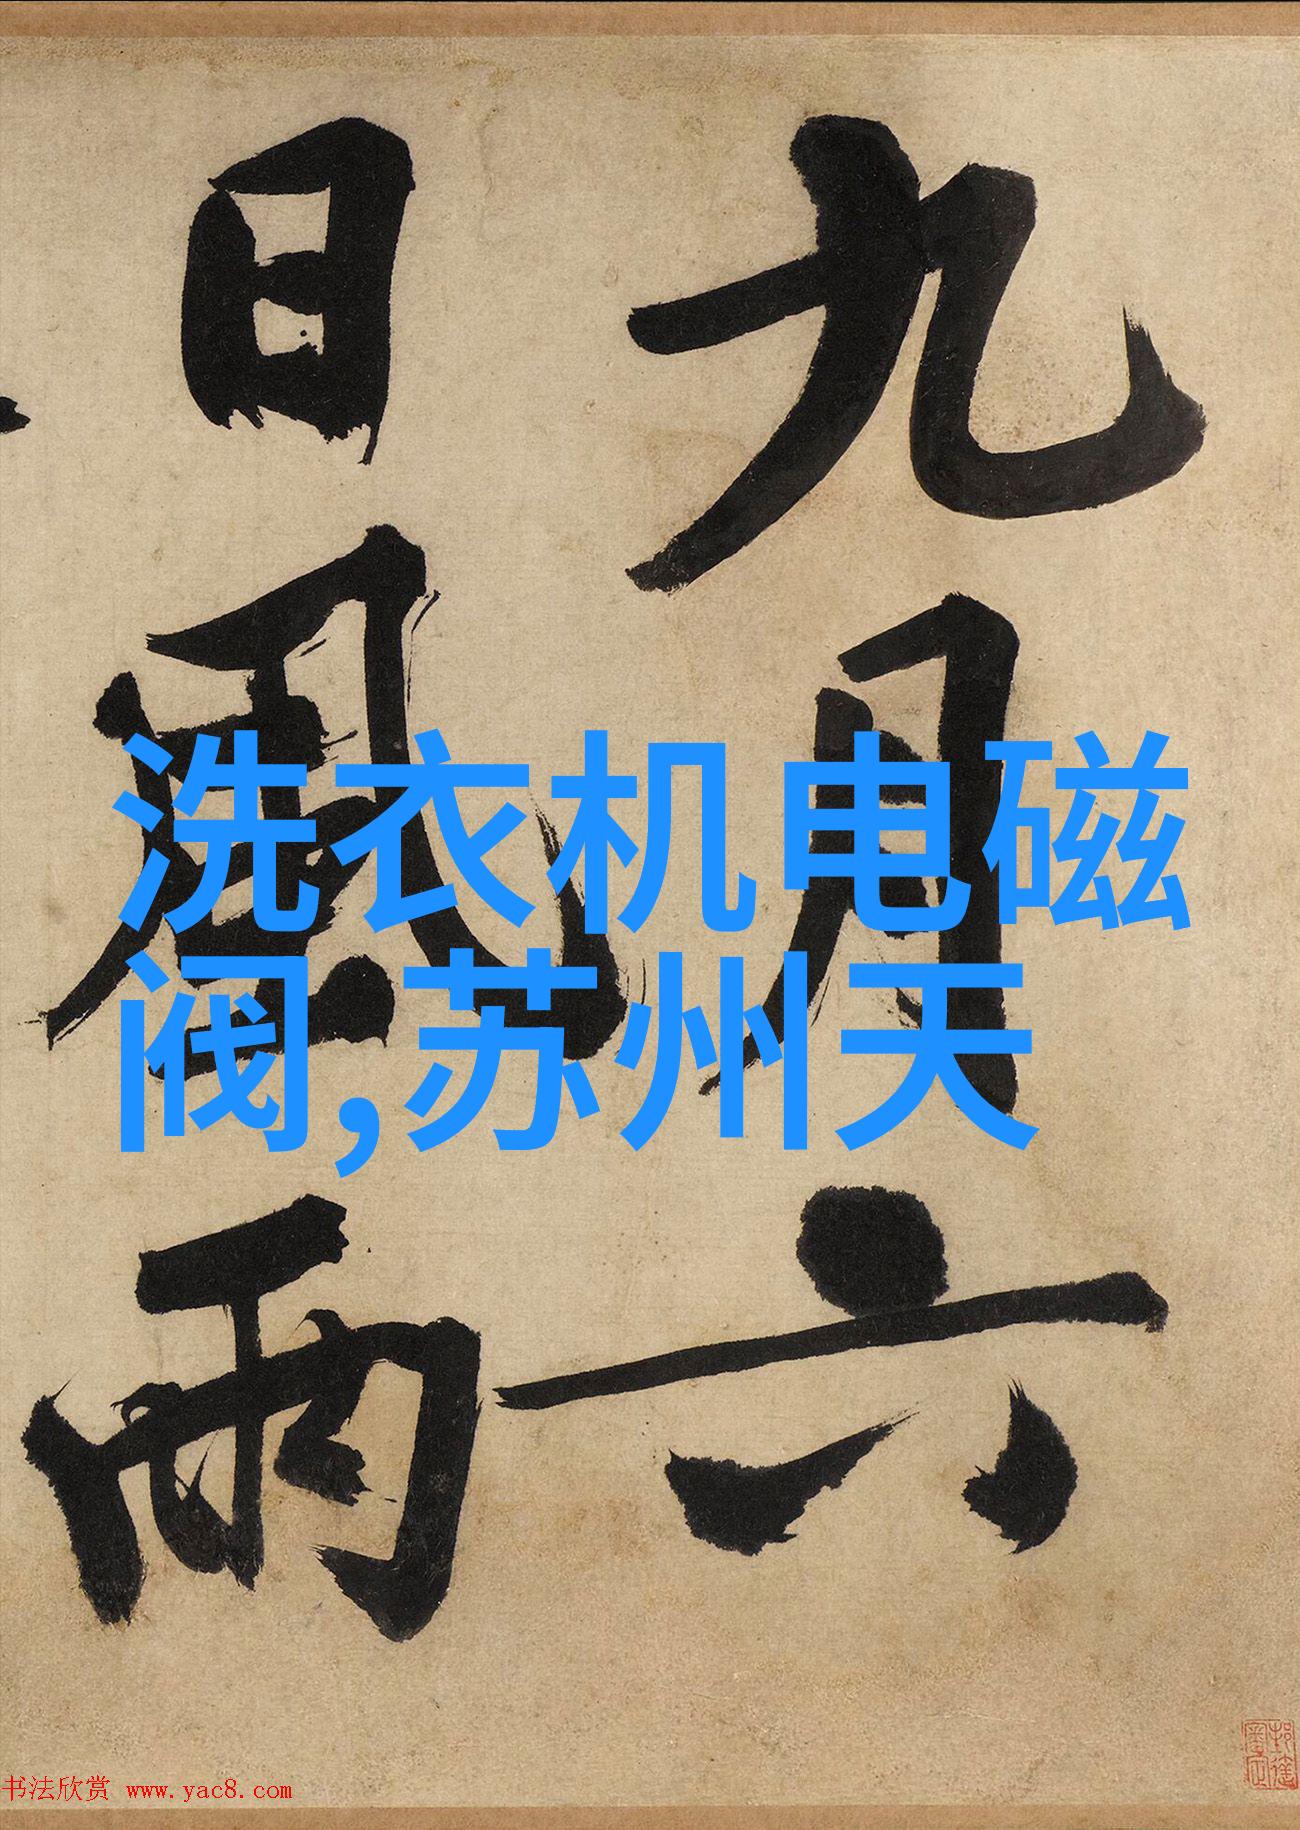 九月六
日風雨
洗衣机电磁
阀,苏州天
书法欣赏 www.yac8.com